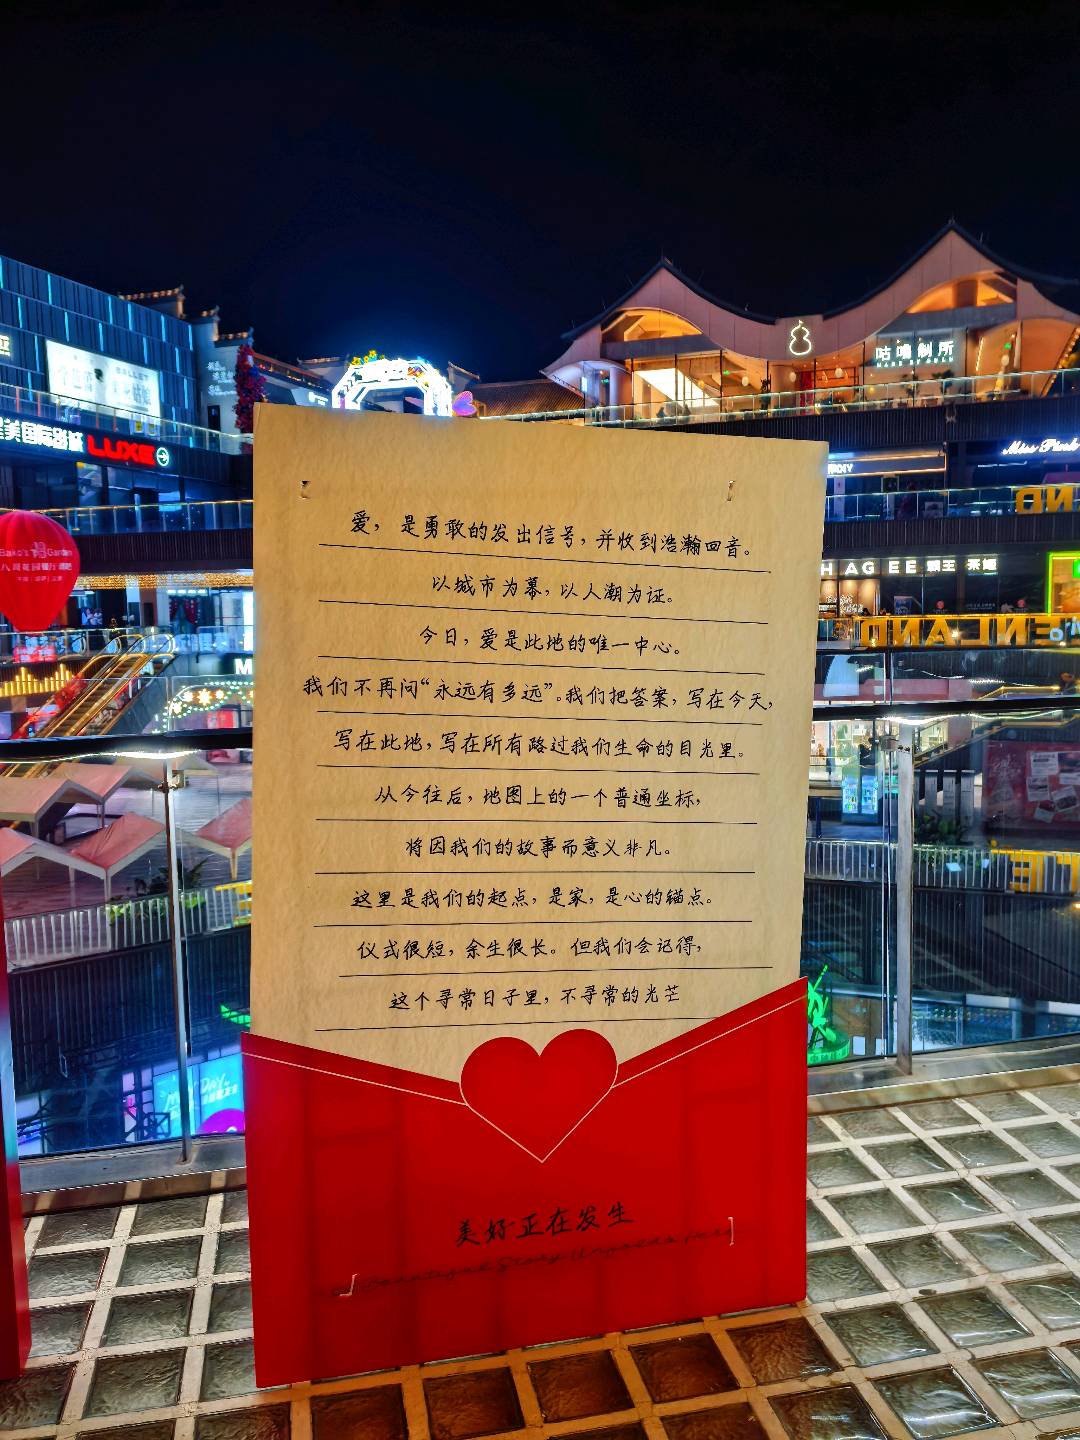 咕噜制所
Miss Pink
BALLET
星美国际影城 LUXE
DIY
爱，是勇敢的发出信号，并收到浩瀚回音。
以城市为幕，以人潮为证。
今日，爱是此地的唯一中心。
我们不再问“永远有多远”。我们把答案，写在今天，
写在此地，写在所有路过我们生命的目光里。
从今往后，地图上的一个普通坐标，
将因我们的故事而意义非凡。
这里是我们的起点，是家，是心的锚点。
仪式很短，余生很长。但我们会记得，
这个寻常日子里，不寻常的光芒
Bako's Garden
HAGEE 霸王茶姬
ENLAND
美好正在发生
A Beautiful Story Unfolds Here